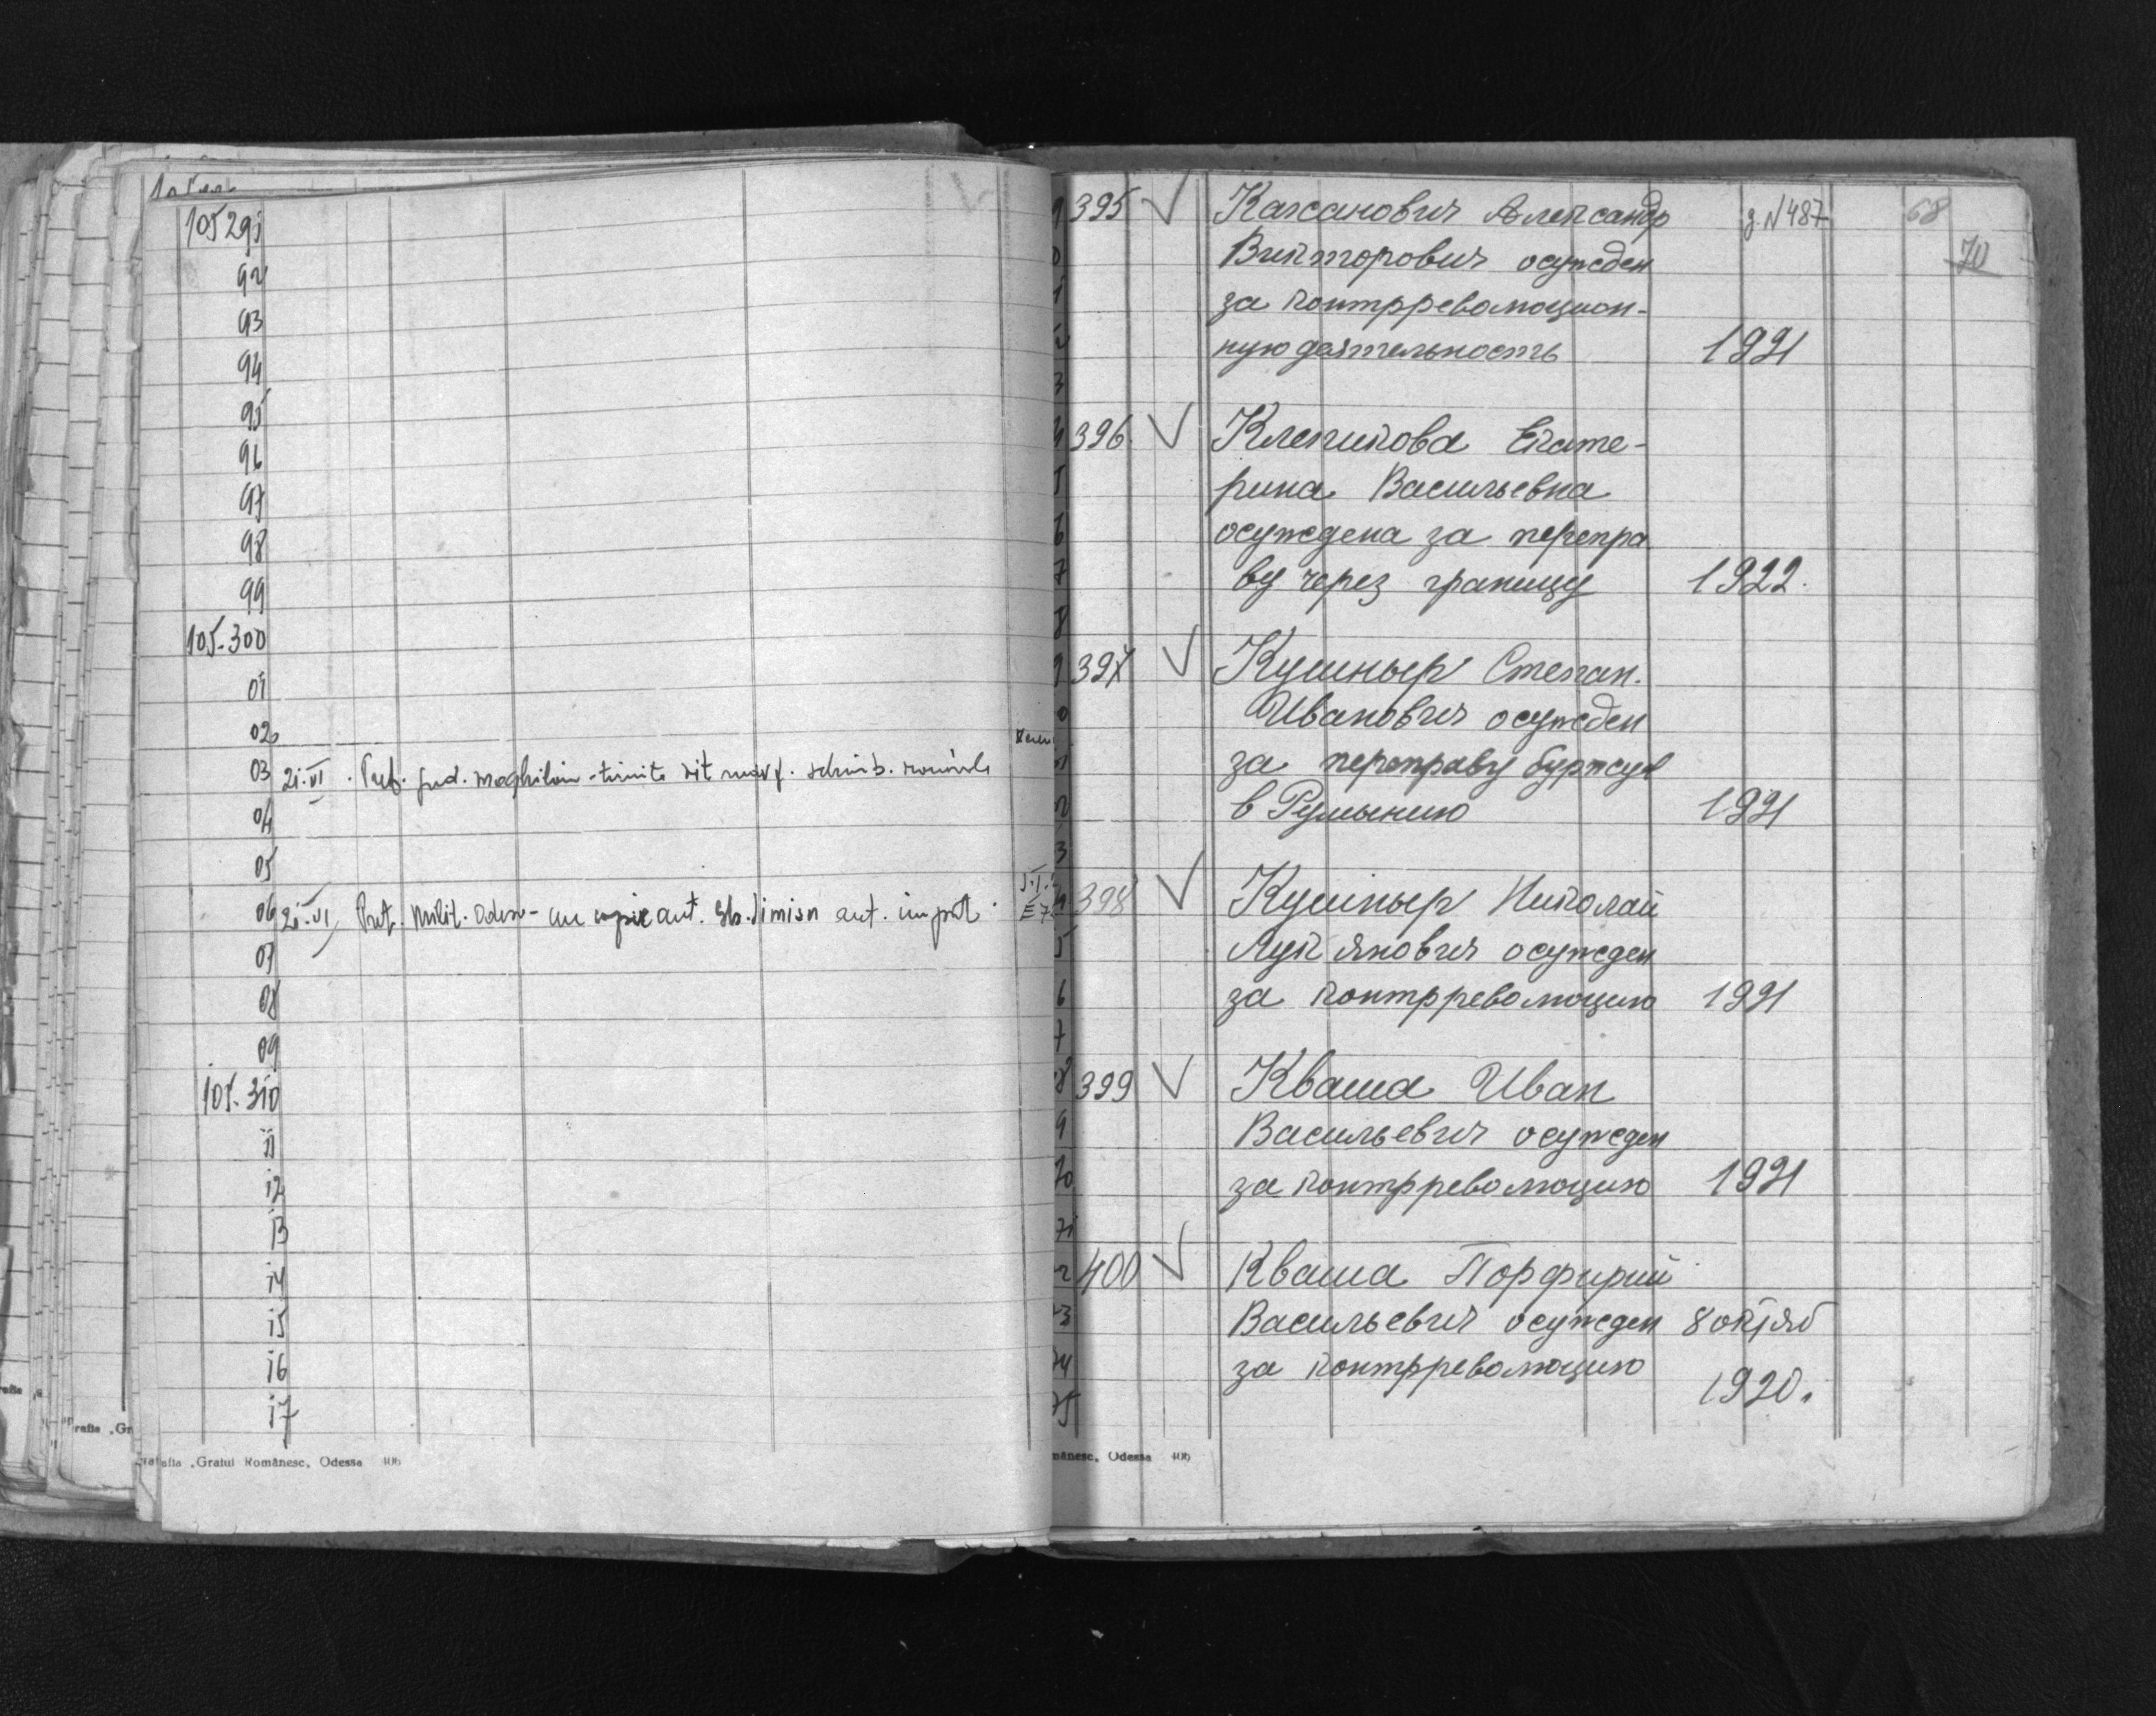 105 291
92
93
94
95
96
97
98
99
105.300
01
02
03 21.VI . Pref. jud. Moghilău - trimite
04
05
06 21.VI Pret. Milit. Odesa - cu copie aut.
07
08
09
105.310
11
12
13
14
15
16
17
Graiul Românesc, Odessa 406
395 √ Кассанович Александр д. N 487 68
Викторович осужден 70
за контрреволюцион-
ную деятельность 1921
396 √ Клепикова Екате-
рина Васильевна
осуждена за перепра
ву через границу 1922.
397 √ Кушныр Степан.
Иванович осужден
за переправу буржуев
в Румынию 1921
398 √ Кушныр Николай
Лукянович осужден
за контрреволюцию 1921
399 √ Кваша Иван
Васильевич осужден
за контрреволюцию 1921
400 √ Кваша Порфирий
Васильевич осужден 8 октяб
за контрреволюцию 1920.
mânesc, Odessa 406